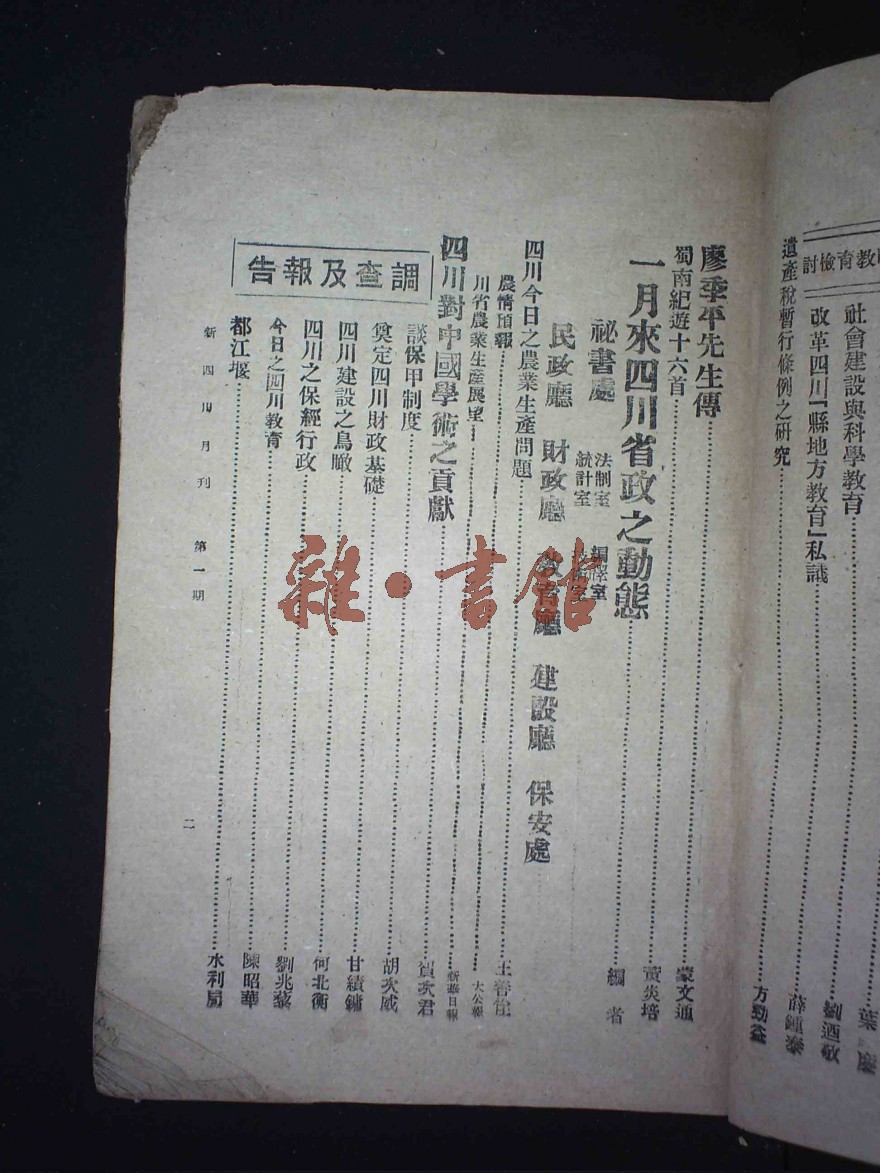 教育檢討
社會建設與科學教育 葉
改革四川「縣地方教育」私議 劉迺敬
薛鍾泰
遺產稅暫行條例之研究 方勁益
廖季平先生傳 蒙文通
蜀南紀遊十六首 黃炎培
一月來四川省政之動態 編者
祕書處 法制室 編譯室
統計室
民政廳 財政廳 教育廳 建設廳 保安處
四川今日之農業生產問題 王善佺
農情預報
川省農業生產展望 大公報
四川對中國學術之貢獻 新華日報
調查及報告
談保甲制度 賀次君
奠定四川財政基礎 胡次威
四川建設之鳥瞰 甘績鏞
四川之保經行政 何北衡
今日之四川教育 劉兆藜
都江堰 陳昭華
水利局
新四川月刊 第一期
二
雜·書館